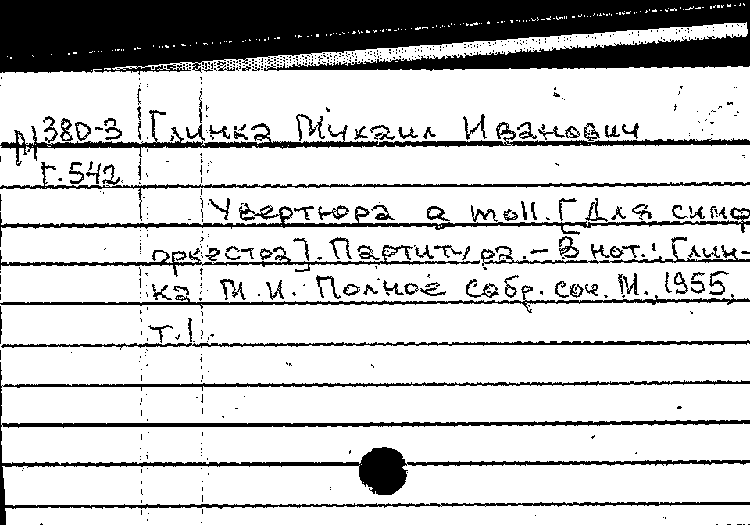 М 380-3 Глинка Михаил Иванович
Г.542
Увертюра a moll. [Для симф
оркестра]. Партитура. – В нот.: Глин-
ка М. И. Полное собр. соч. М., 1955,
т.1.